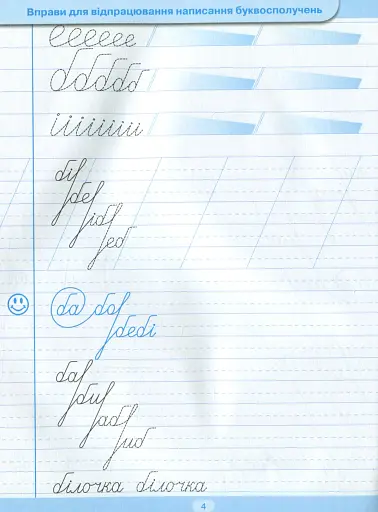 Вправи для відпрацювання написання буквосполучень
еееееее
ббббб
ііііііі
бі
бе
іб
еб
ба бо
бебі
ба
би
аб
иб
білочка білочка
4